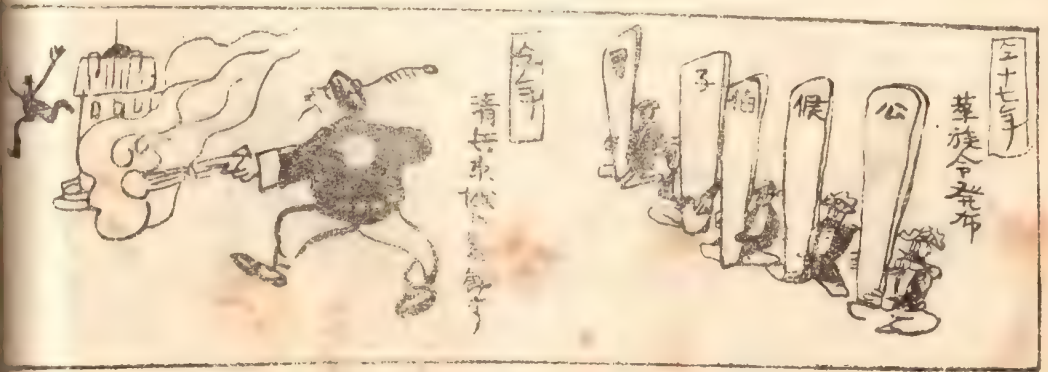 仝十七年
華族令発布
公
候
伯
子
男
仝年
清兵